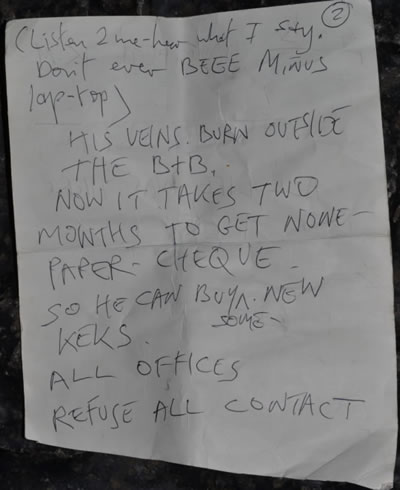 (Listen 2 me-hear what I say. ②
Don't ever BEEE MiÑUS
lap-top)
HIS VEINS. BURN OUTSIDE
THE B+B.
NOW IT TAKES TWO
MONTHS TO GET NONE-
PAPER- CHEQUE.
SO HE CAN BUY^. NEW
SOME-
KEKS.
ALL OFFICES
REFUSE ALL CONTACT